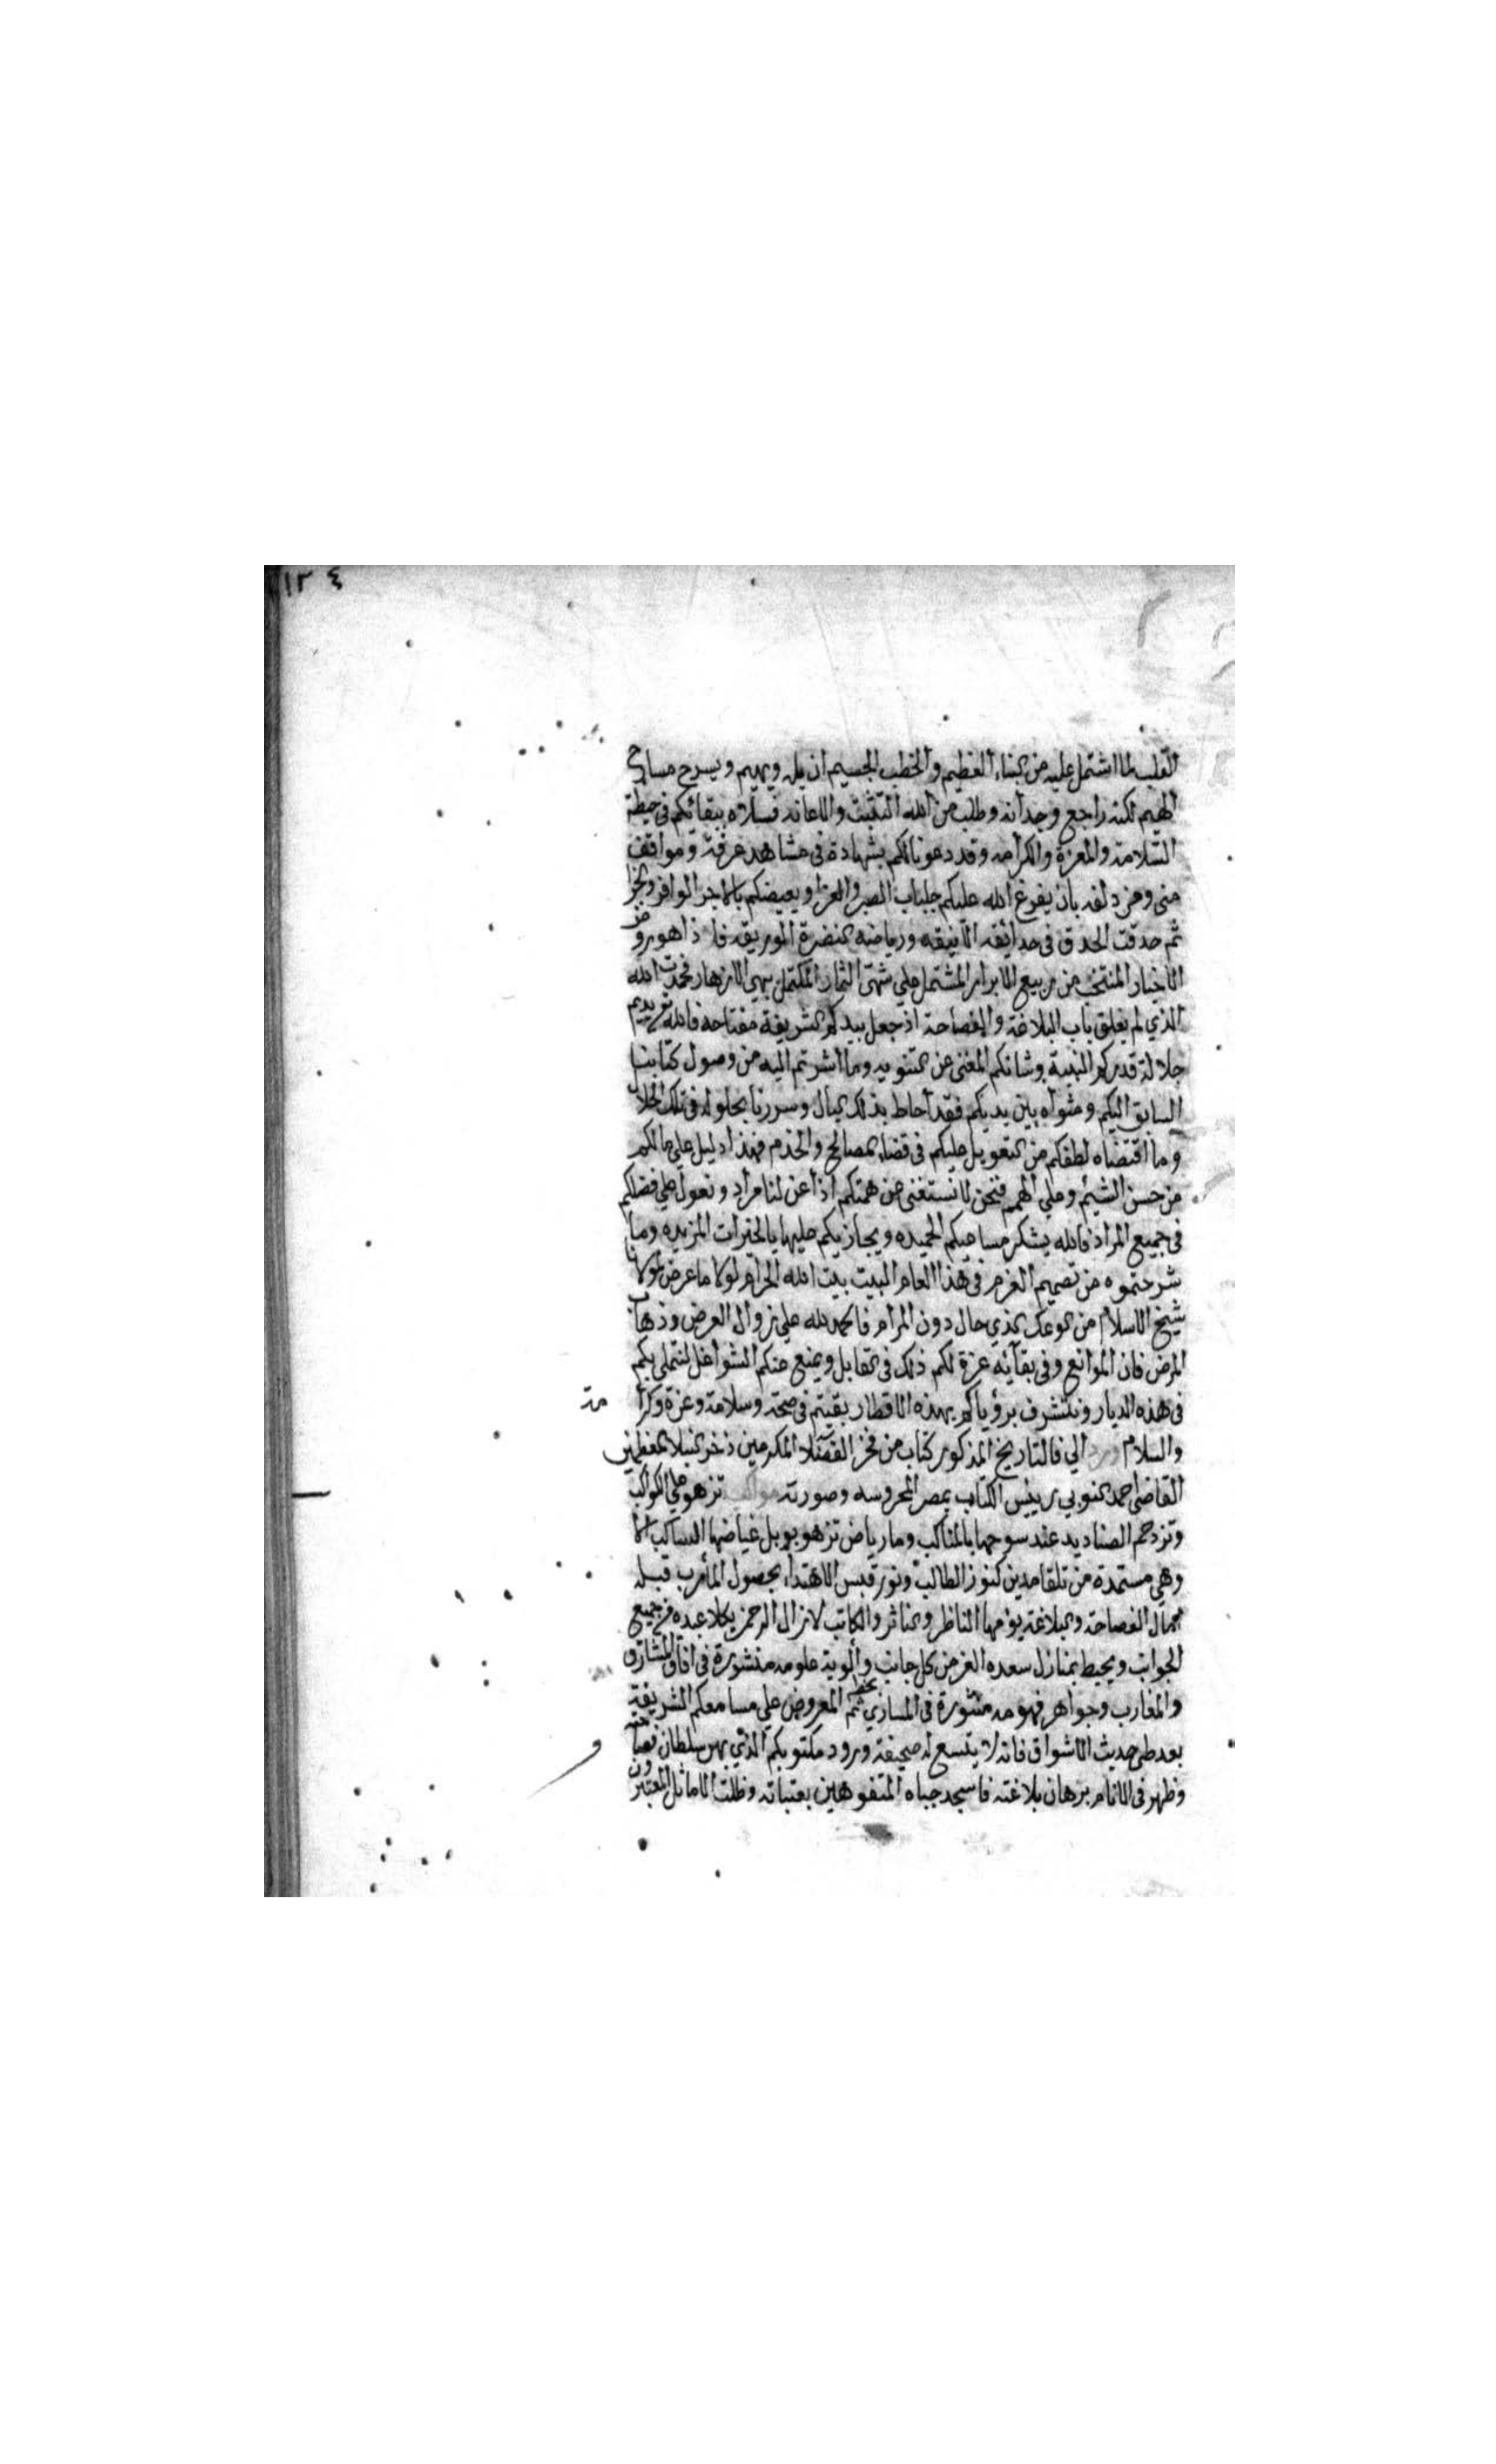 ١٣٤
القلب لما اشتمل عليه من النباء العظيم والخطب الجسيم ان يله ويهيم ويسرح مسارح
الهيم لكنه راجع وجدانه وطلب من الله التثبت والاعانه فسلاه ببقائكم في حيطة
السلامة والمعزة والكرامه وقد دعونا لكم بشهادة في مشاهد عرفة ومواقف
منى ومزدلفه بان يفرغ الله عليكم جلباب الصبر والعزا ويعيضكم بالاجر الوافر والجزا
ثم حدقت الحدق في حدائقه الانيقه ورياضه النضرة الوريقه فاذا هو روض
الاخيار المنتخب من ربيع الابرار المشتمل على شتى الثمار المكتمل ببهي الازهار فحمدت الله
الذي لم يغلق باب البلاغة والفصاحة اذ جعل بيدكم الشريفة مفتاحه فالله تع يديم
جلالة قدركم النبيه وشانكم المغنى عن التنويه وما اشرتم اليه من وصول كتابنا
السابق اليكم ومثواه بين يديكم فقد احاط بذلك البال وسررنا بحلوله في تلك الحلال
وما اقتضاه لطفكم من التعويل عليكم في قضاء المصالح والخدم فهذا دليل على مالكم
من حسن الشيم وعلي الهمم فنحن لا نستغنى عن همتكم اذا عن لنا مراد ونعول على فضلكم
في جميع المراد فالله يشكر مساعيكم الحميده ويجازيكم عليها بالخيرات المزيده وما
شرحتموه من تصميم العزم في هذا العام البيت بيت الله الحرام لولا ما عرض لمولانا
شيخ الاسلام من الوعك الذي حال دون المرام فالحمد لله على زوال العرض وذهاب
المرض فان الموانع وفي بقائه عزة لكم ذلك في القابل ويمنع عنكم الشواغل لنتملى بكم
في هذه الديار ونتشرف برؤياكم بهذه الاقطار بقيتم في صحة وسلامة وعزة وكرا مة
والسلام ورد الي في التاريخ المذكور كتاب من فخر الفضلا المكرمين ذخر النبلا المعظمين
القاضى احمد النوبي رييس الكتاب بمصر المحروسه وصورته مواكب تزهو على الكواكب
وتزدحم الصناديد عند سوحها بالمناكب وما رياض تزهو بوبل غياضها الساكب الا
وهي مستمدة من تلقا مدين كنوز الطالب ونور قبس الاهتداء بحصول المأرب قبله
جمال الفصاحة والبلاغة يؤمها الناظر والناثر والكاتب لا زال الرحمن يكلا عبده من جميع
الجوانب ويحيط بمنازل سعده الغر من كل جانب وألوية علومه منشورة في افاق المشارق
والمغارب وجواهر فهومه منثورة في المسازي ثم المعروض على مسامعكم الشريفة
بعد طى حديث الاشواق فانه لا يتسع له صحيفة ورود مكتوبكم الذي بهر سلطان فصاحته
وظهر في الانام برهان بلاغته فاسجد جباه المتفوهين بعتباته وظلت الاماثل المعتبرون
و